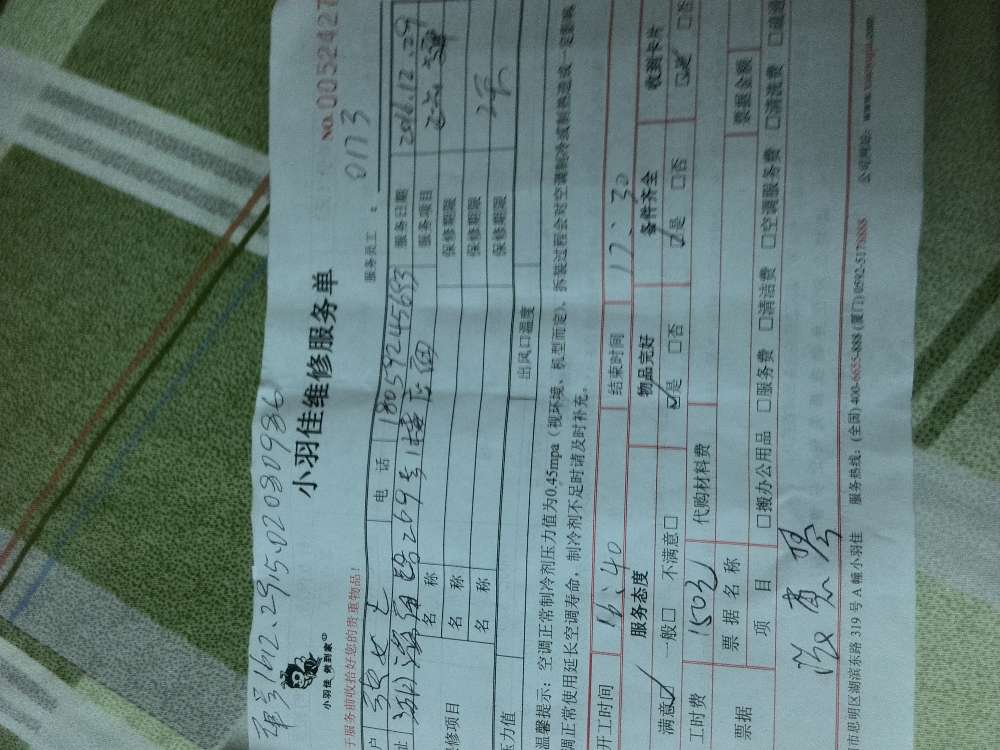 单号1612.2915.02080986
小羽佳 做到家
小羽佳维修服务单
NO.0052427
于服务前收拾好您的贵重物品!
服务员工: 0173
户 女士 电 话 18059245693 服务日期 2016.12.29
址 269号 服务项目
修项目 名 称 保修期限
名 称 保修期限
名 称 保修期限
压力值 出风口温度
温馨提示:空调正常制冷剂压力值为0.45mpa(视环境、机型而定)、拆装过程会对空调制冷或制热造成一定影响
调正常使用延长空调寿命,制冷剂不足时请及时补充。
开工时间 16:40 结束时间 17:30
服务态度 物品完好 备件齐全 收到卡片
满意☑ 一般□ 不满意□ ☑是 □否 ☑是 □否 ☑是 □否
工时费 150元 代购材料费
票据 票 据 名 称 票据金额
项 目 □搬办公用品 □服务费 □清洁费 □空调服务费 □清洗费 □疏通
市思明区湖滨东路 319 号 A 幢小羽佳 服务热线:(全国) 400-6655-888 (厦门) 0592-5178888 公司网址:www.xiaoyujia.com